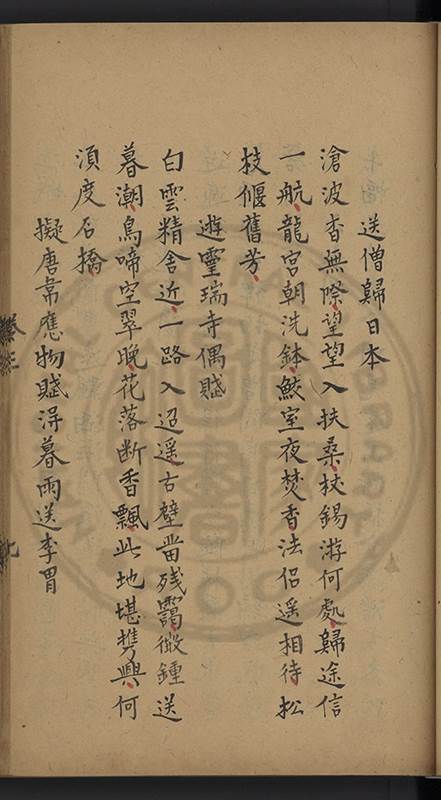 送僧歸日本
滄波杳無際望望入扶桑杖錫游何處歸途信
一航龍宮朝洗鉢鮫室夜焚香法侶遥相待松
枝偃舊芳
遊靈瑞寺偶賦
白雲精舍近一路入迢遥古壁畱残靄微鍾送
暮潮鳥啼空翠晚花落断香飄此地堪携興何
須度石橋
擬唐韋應物賦得暮雨送李冑
卷三